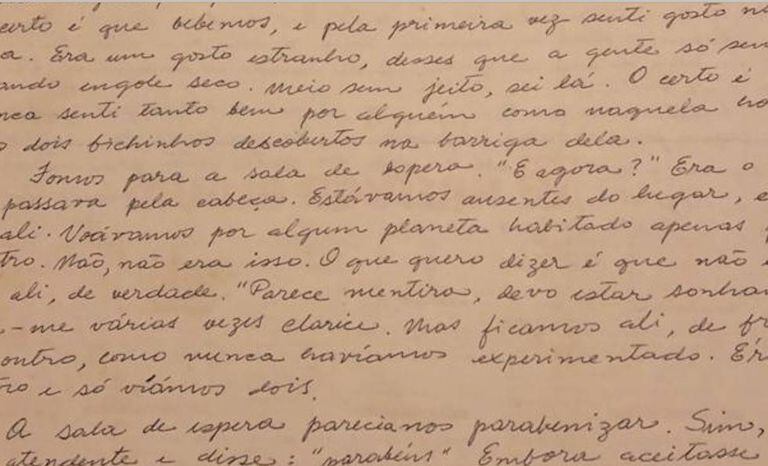 certo é que bebemos, e pela primeira vez senti gosto n
a. Era um gosto estranho, desses que a gente só sen
ando engole seco. Meio sem jeito, sei lá. O certo é
nca senti tanto bem por alguém como naquela ho
o dois bichinhos descobertos na barriga dela.
Fomos para a sala de espera. "E agora?" Era o
passava pela cabeça. Estávamos ausentes do lugar, e
ali. Voávamos por algum planeta habitado apenas
tro. Não, não era isso. O que quero dizer é que não
ali, de verdade. "Parece mentira, devo estar sonha
-me várias vezes Clarice. Mas ficamos ali, de fr
outro, como nunca havíamos experimentado. Ér
no e só víamos dois.
A sala de espera parecia nos parabenizar. Sim,
atendente e disse: "parabéns" Embora aceitasse